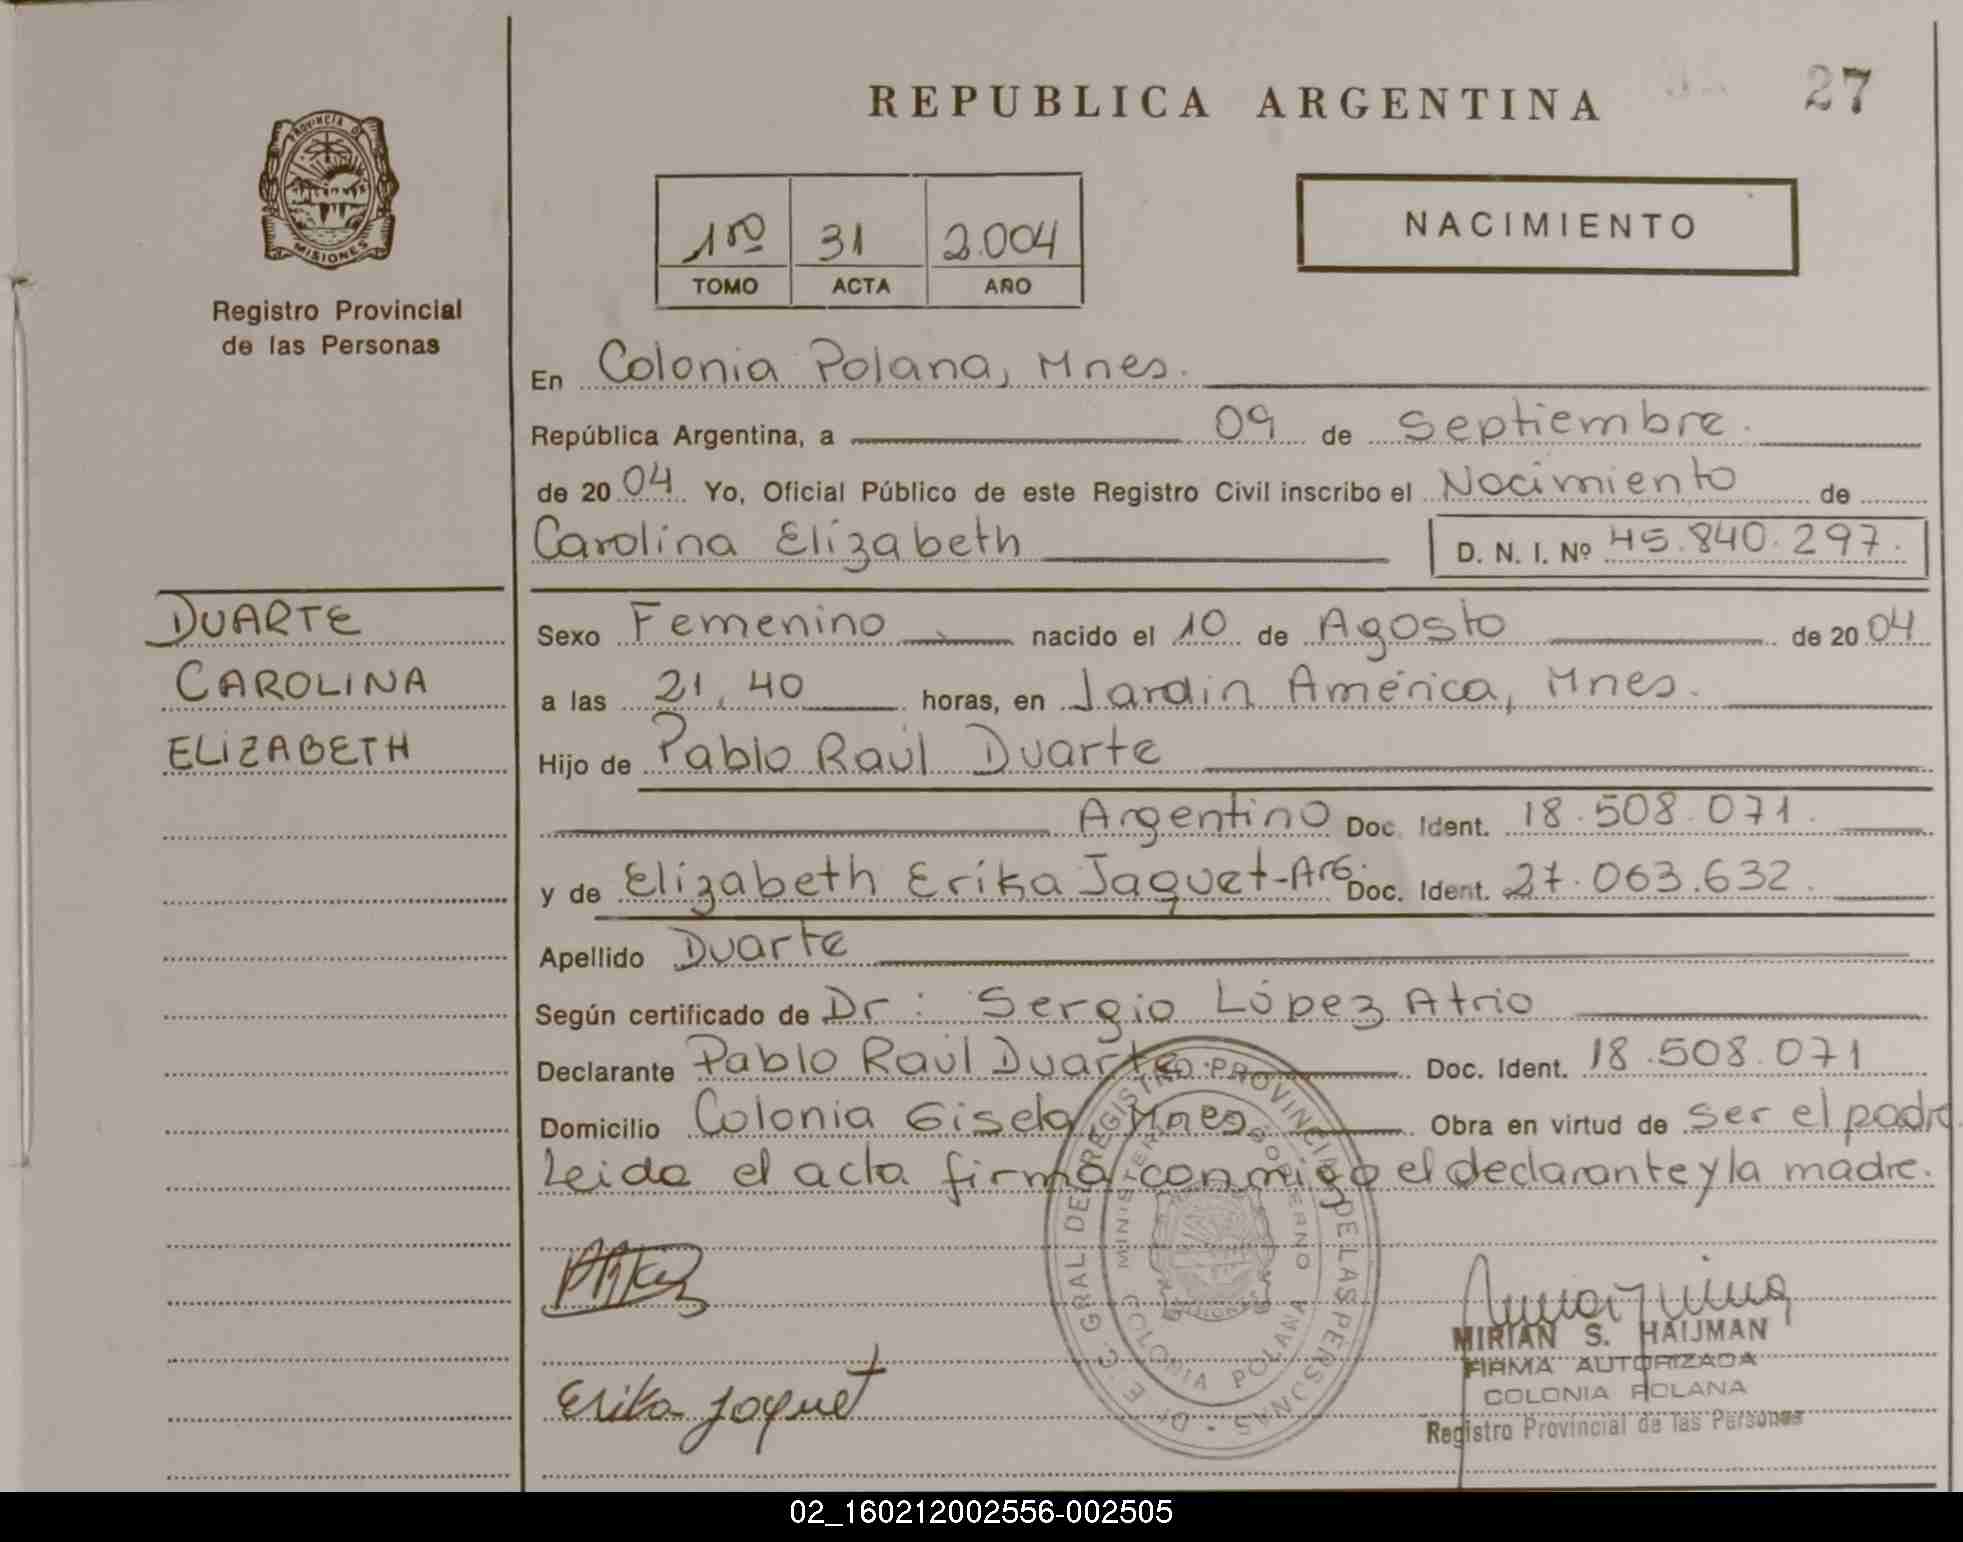 REPUBLICA ARGENTINA
27
PROVINCIA DE MISIONES
Registro Provincial
de las Personas
1rº 31 2.004
TOMO ACTA AÑO
NACIMIENTO
En Colonia Polana, Mnes.
República Argentina, a 09 de Septiembre.
de 2004 Yo, Oficial Público de este Registro Civil inscribo el Nacimiento de
Carolina Elizabeth D. N. I. Nº 45.840.297.
DUARTE
CAROLINA
ELIZABETH
Sexo Femenino nacido el 10 de Agosto de 2004
a las 21,40 horas, en Jardin América, Mnes.
Hijo de Pablo Raúl Duarte
Argentino Doc. Ident. 18.508.071.
y de Elizabeth Erika Jaquet-Arg. Doc. Ident. 27.063.632.
Apellido Duarte
Según certificado de Dr: Sergio López Atrio
Declarante Pablo Raúl Duarte Doc. Ident. 18.508.071
Domicilio Colonia Gisela Mnes. Obra en virtud de ser el padre
Leida el acta firma conmigo el declarante y la madre.
DI. E. C. GRAL DEL REGISTRO PROVINCIAL DE LAS PERSONAS
MINISTERIO GOBIERNO
COLONIA POLANA
Erika Jaquet
MIRIAN S. HAIJMAN
FIRMA AUTORIZADA
COLONIA POLANA
Registro Provincial de las Personas
02_160212002556-002505